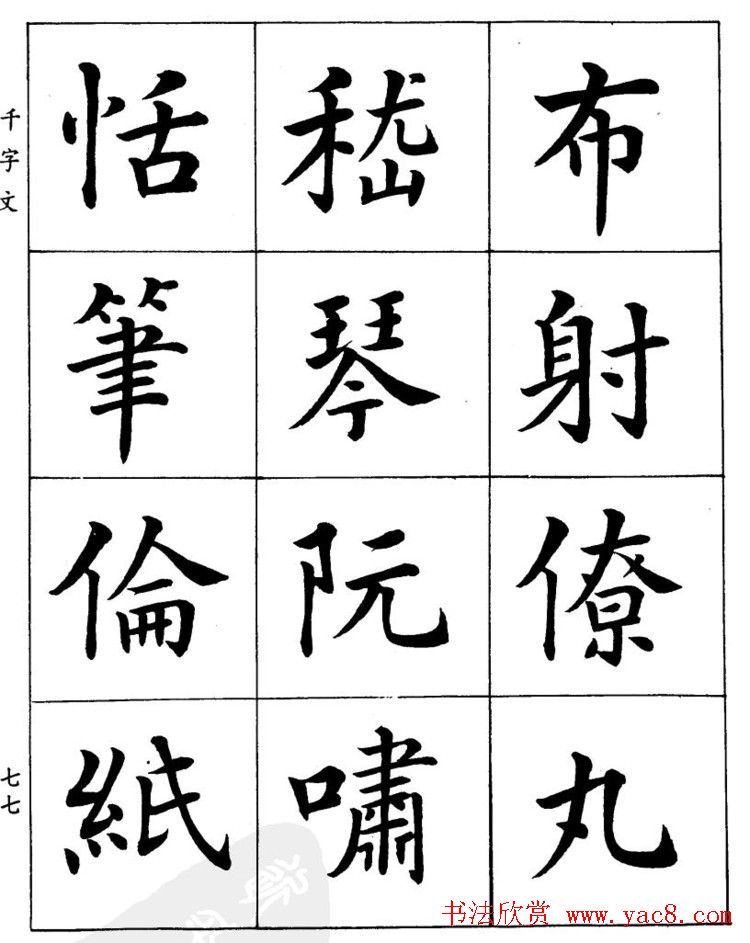 布射僚丸
嵇琴阮嘯
恬筆倫紙
千字文
七七
书法欣赏 www.yac8.com